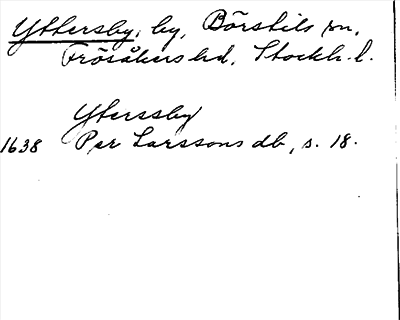 Yttersby, by, Börstils sn,
Frösåkers hd, Stockh. l.
Yterssby
1638 Per Larssons db, s. 18.